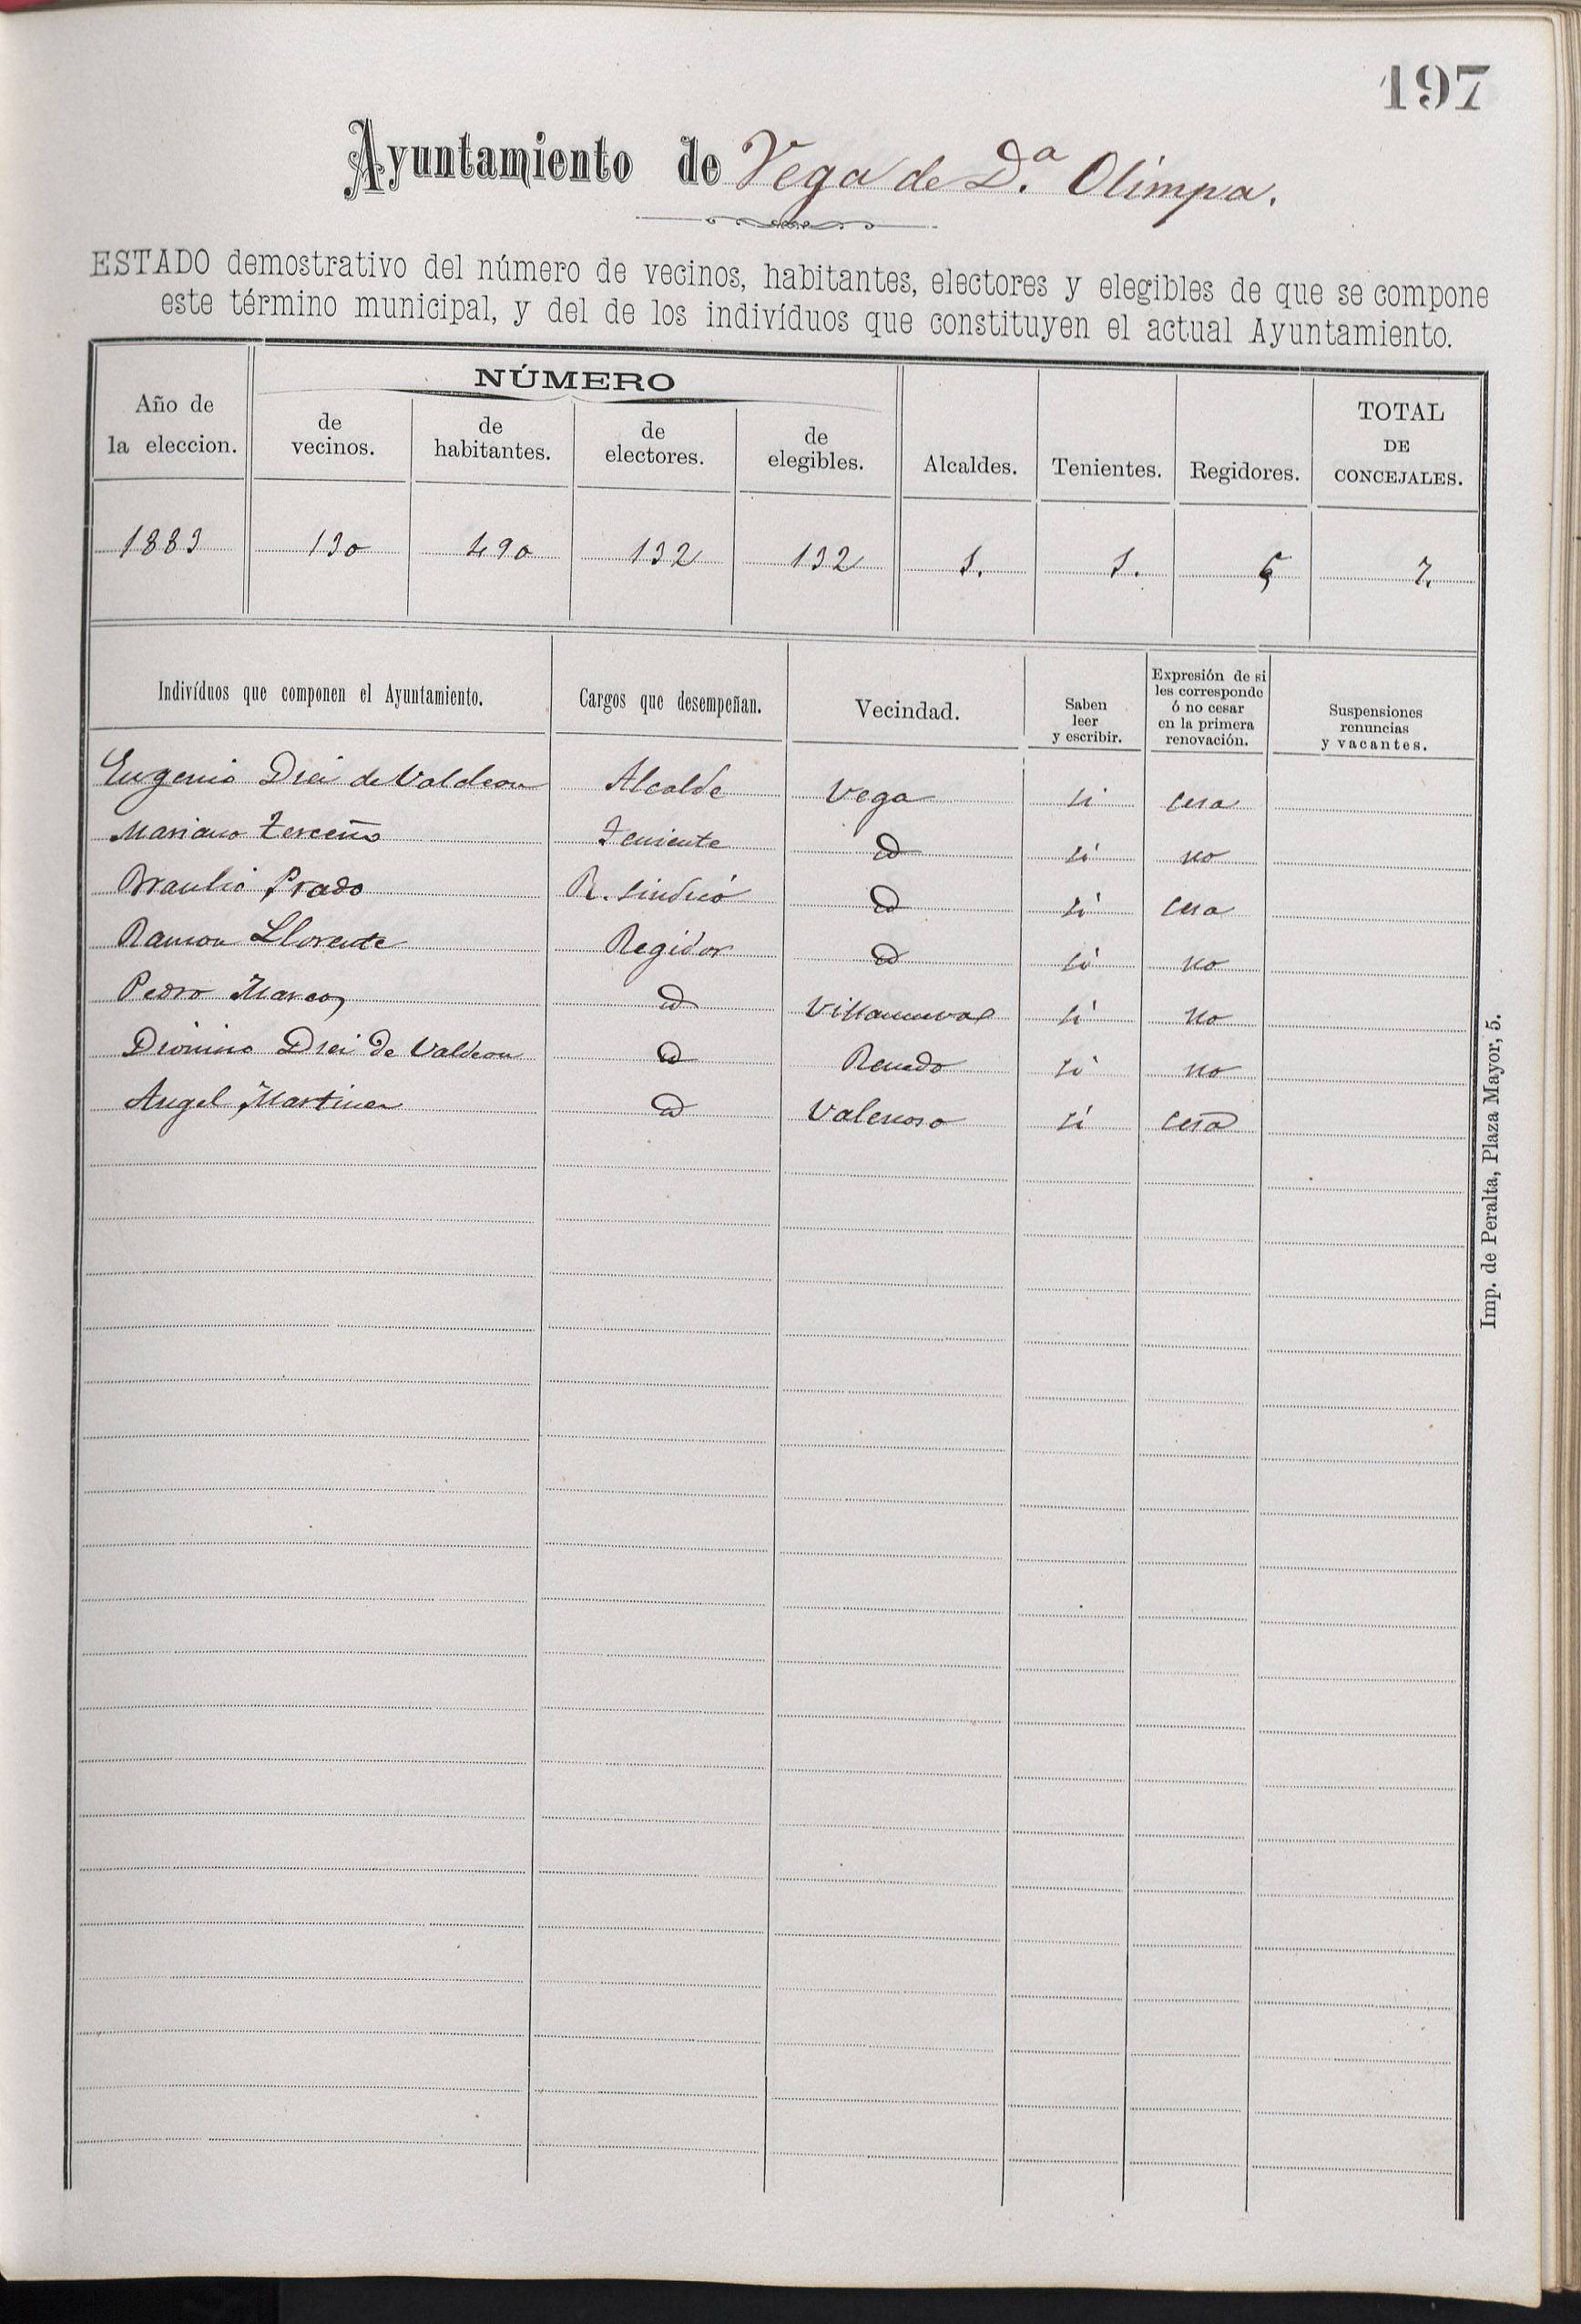 197
Ayuntamiento de Vega de D.ª Olimpa.
ESTADO demostrativo del número de vecinos, habitantes, electores y elegibles de que se compone
este término municipal, y del de los indivíduos que constituyen el actual Ayuntamiento.
Año de la eleccion. NÚMERO de vecinos. de habitantes. de electores. de elegibles. Alcaldes. Tenientes. Regidores. TOTAL DE CONCEJALES.
1883 130 490 132 132 1. 1. 5 7.
Indivíduos que componen el Ayuntamiento. Cargos que desempeñan. Vecindad. Saben leer y escribir. Expresión de si les corresponde ó no cesar en la primera renovación. Suspensiones renuncias y vacantes.
Eugenio Diei de Valdeon Alcalde Vega si cesa
Mariano Terceño Teniente id si no
Braulio Prado R. sindicó id si cesa
Ramon Llorente Regidor id si no
Pedro Marcos id Villanueva si no
Dionisio Diei de Valdeon id Renedo si no
Angel Martinez id Valenoso si cesa
Imp. de Peralta, Plaza Mayor, 5.